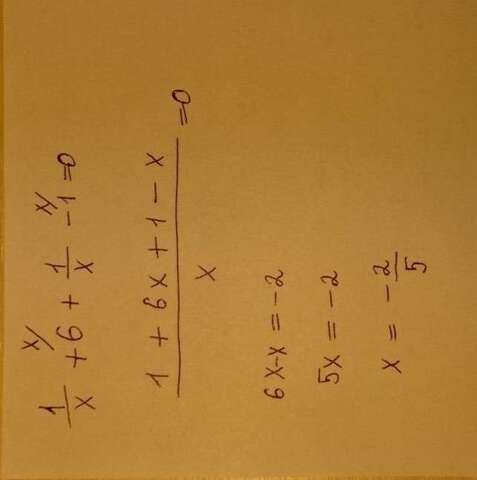 1/x + 6 + 1/x - 1 = 0
x/ x/
(1 + 6x + 1 - x)/x = 0
6x - x = -2
5x = -2
x = -2/5